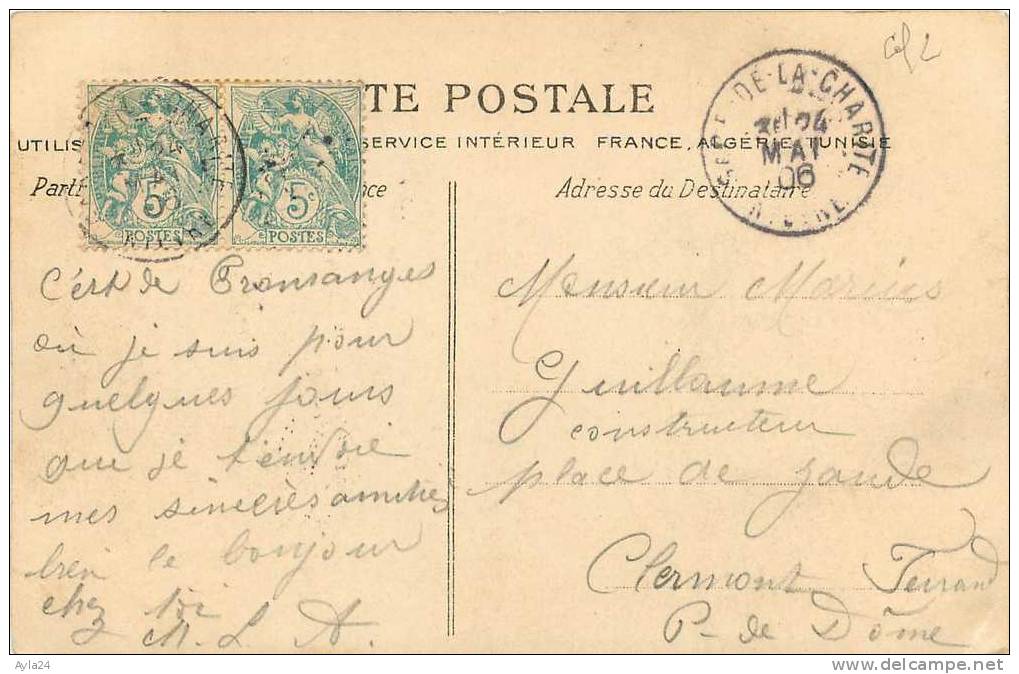 cf 2
CARTE POSTALE
UTILIS SERVICE INTÉRIEUR FRANCE, ALGÉRIE, TUNISIE
Parti nce
Adresse du Destinataire
DE-LA-CHARITE
24
MAI
06
NIEVRE
5c 5c
POSTES POSTES
C'est de Pronsanges
où je suis pour
quelques jours
que je t'envoie
mes sincères amitiés
bien le bonjour
chez toi
M. L. A.
Monsieur Marius
Guillaume
constructeur
place de Jaude
Clermont Ferrand
P- de Dôme
Ayla24
http://www.delcampe.net